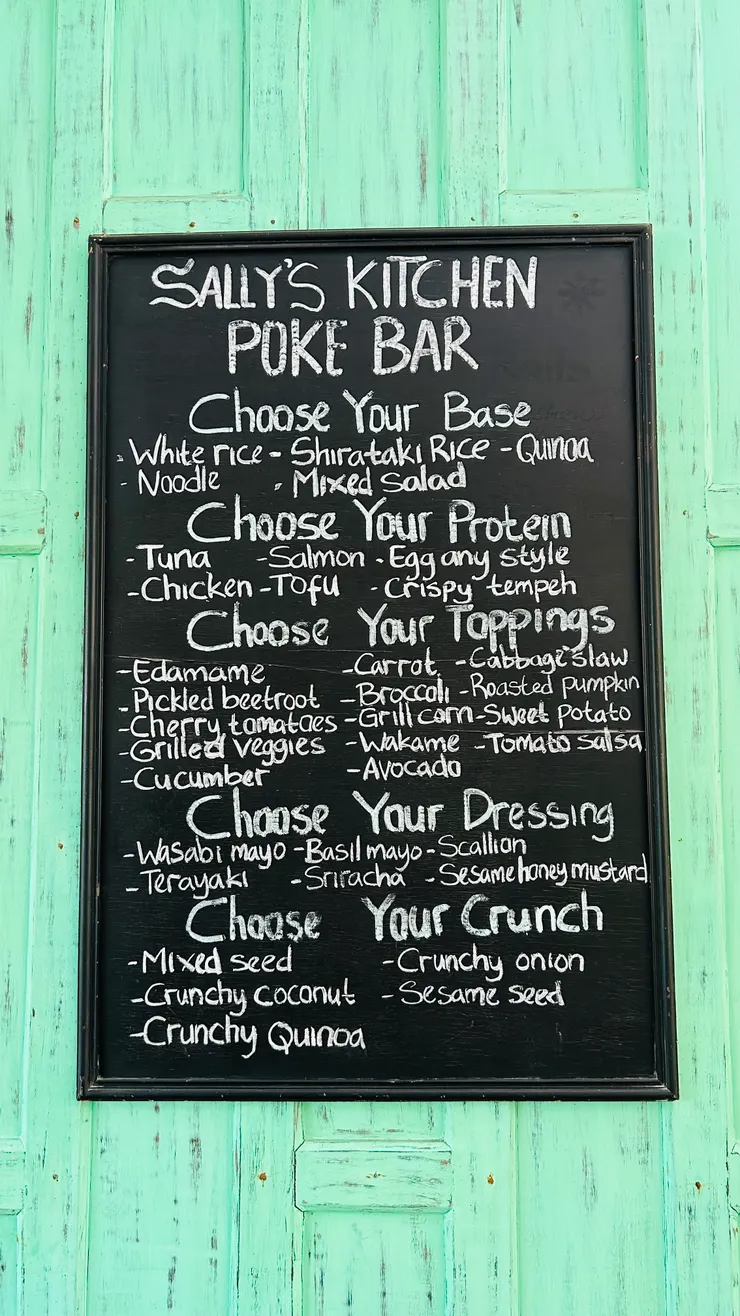 SALLY'S KITCHEN
POKE BAR
Choose Your Base
- White rice - Shirataki Rice - Quinoa
- Noodle - Mixed Salad
Choose Your Protein
- Tuna - Salmon - Egg any style
- Chicken - Tofu - Crispy tempeh
Choose Your Toppings
- Edamame - Carrot - Cabbage slaw
- Pickled beetroot - Broccoli - Roasted pumpkin
- Cherry tomatoes - Grill corn - Sweet potato
- Grilled veggies - Wakame - Tomato salsa
- Cucumber - Avocado
Choose Your Dressing
- Wasabi mayo - Basil mayo - Scallion
- Terayaki - Sriracha - Sesame honey mustard
Choose Your Crunch
- Mixed seed - Crunchy onion
- Crunchy coconut - Sesame seed
- Crunchy Quinoa